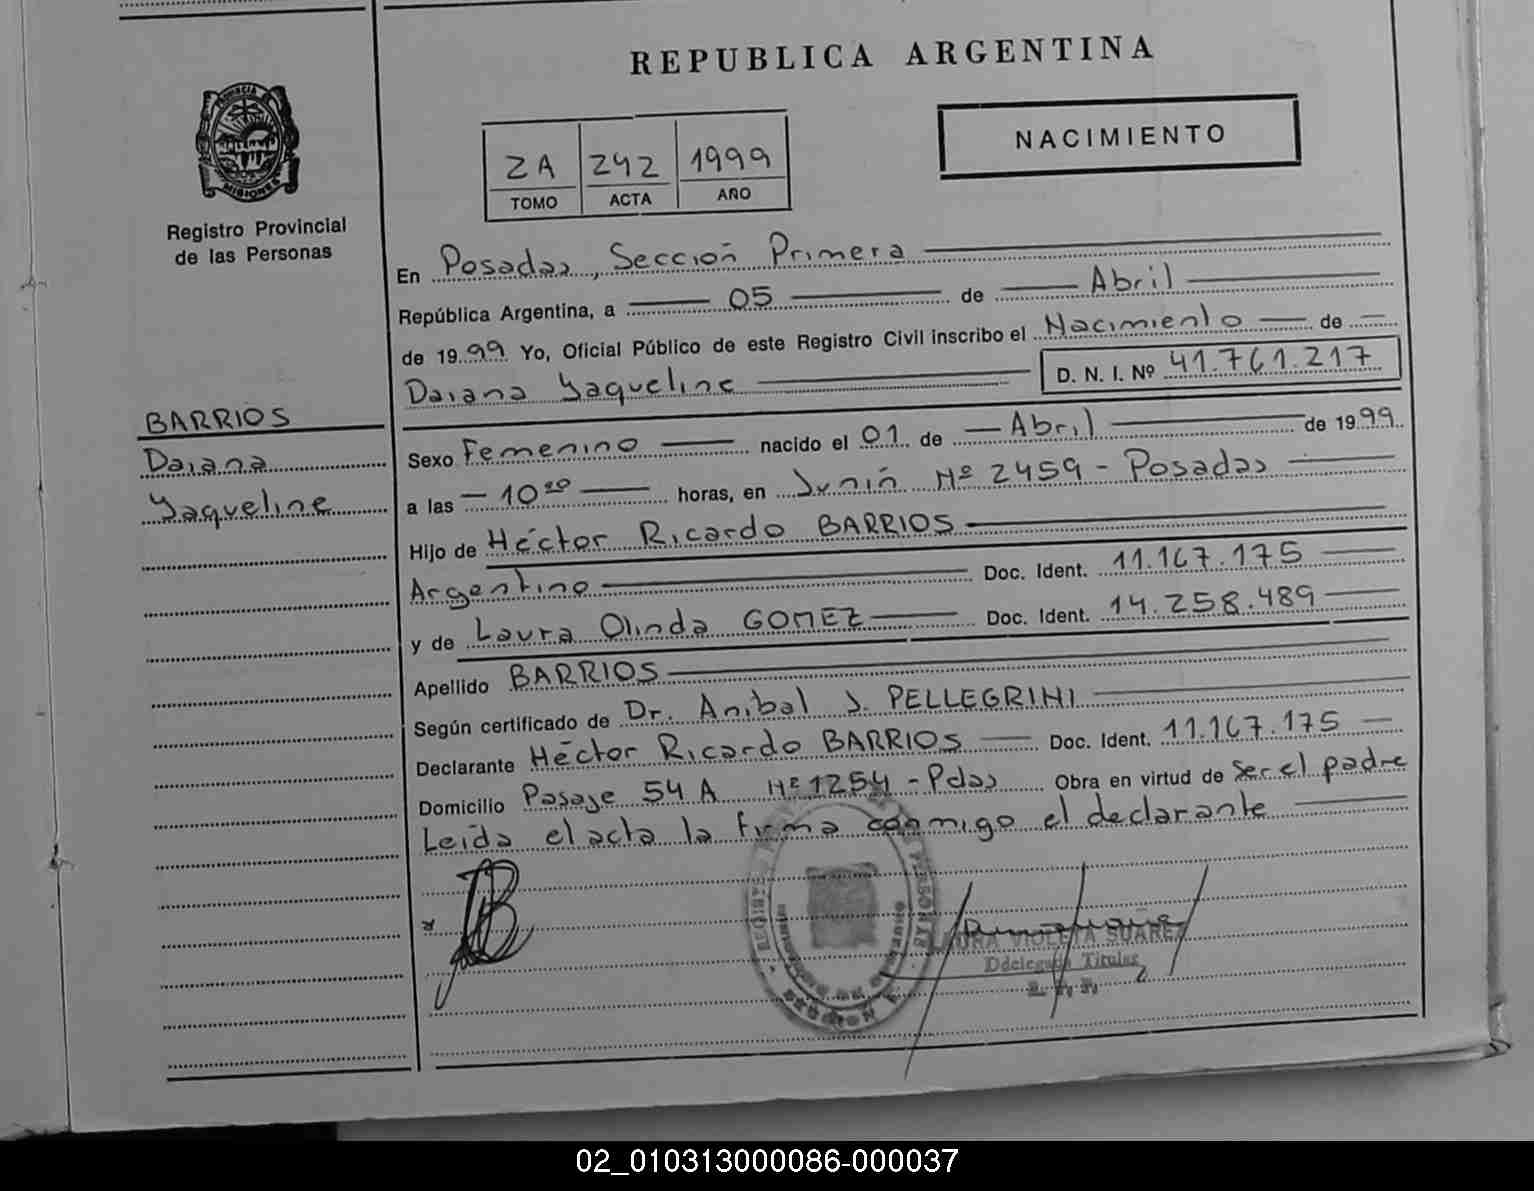 REPUBLICA ARGENTINA
PROVINCIA DE
MISIONES
Registro Provincial
de las Personas
NACIMIENTO
2A 242 1999
TOMO ACTA AÑO
En Posadas, Sección Primera
República Argentina, a 05 de Abril
de 1999 Yo, Oficial Público de este Registro Civil inscribo el Nacimiento de
Daiana Yaqueline D. N. I. Nº 41.761.217
BARRIOS
Daiana
Yaqueline
Sexo Femenino nacido el 01 de Abril de 1999
a las 10 20 horas, en Junín Nº 2459 - Posadas
Hijo de Héctor Ricardo BARRIOS
Argentino Doc. Ident. 11.167.175
y de Laura Olinda GOMEZ Doc. Ident. 14.258.489
Apellido BARRIOS
Según certificado de Dr. Anibal J. PELLEGRINI
Declarante Héctor Ricardo BARRIOS Doc. Ident. 11.167.175
Domicilio Pasaje 54 A Nº 1254 - Pdas Obra en virtud de Ser el padre
Leída el acta la firma conmigo el declarante
LAURA VIOLETA SUAREZ
Ddelegada Titular
02_010313000086-000037